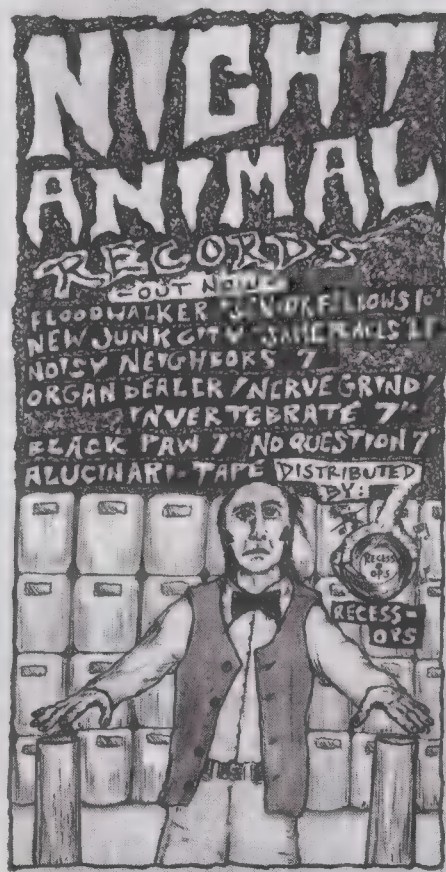 NIGHT
ANIMAL
RECORDS
OUT
FLOODWALKER
NEW JUNK CITY
NOISY NEIGHBORS 7"
ORGAN DEALER / NERVE GRIND /
INVERTEBRATE 7"
BLACK PAW 7" NO QUESTION 7"
ALUCINARI - TAPE
DISTRIBUTED
BY:
RECESS
OPS
RECESS-
OPS